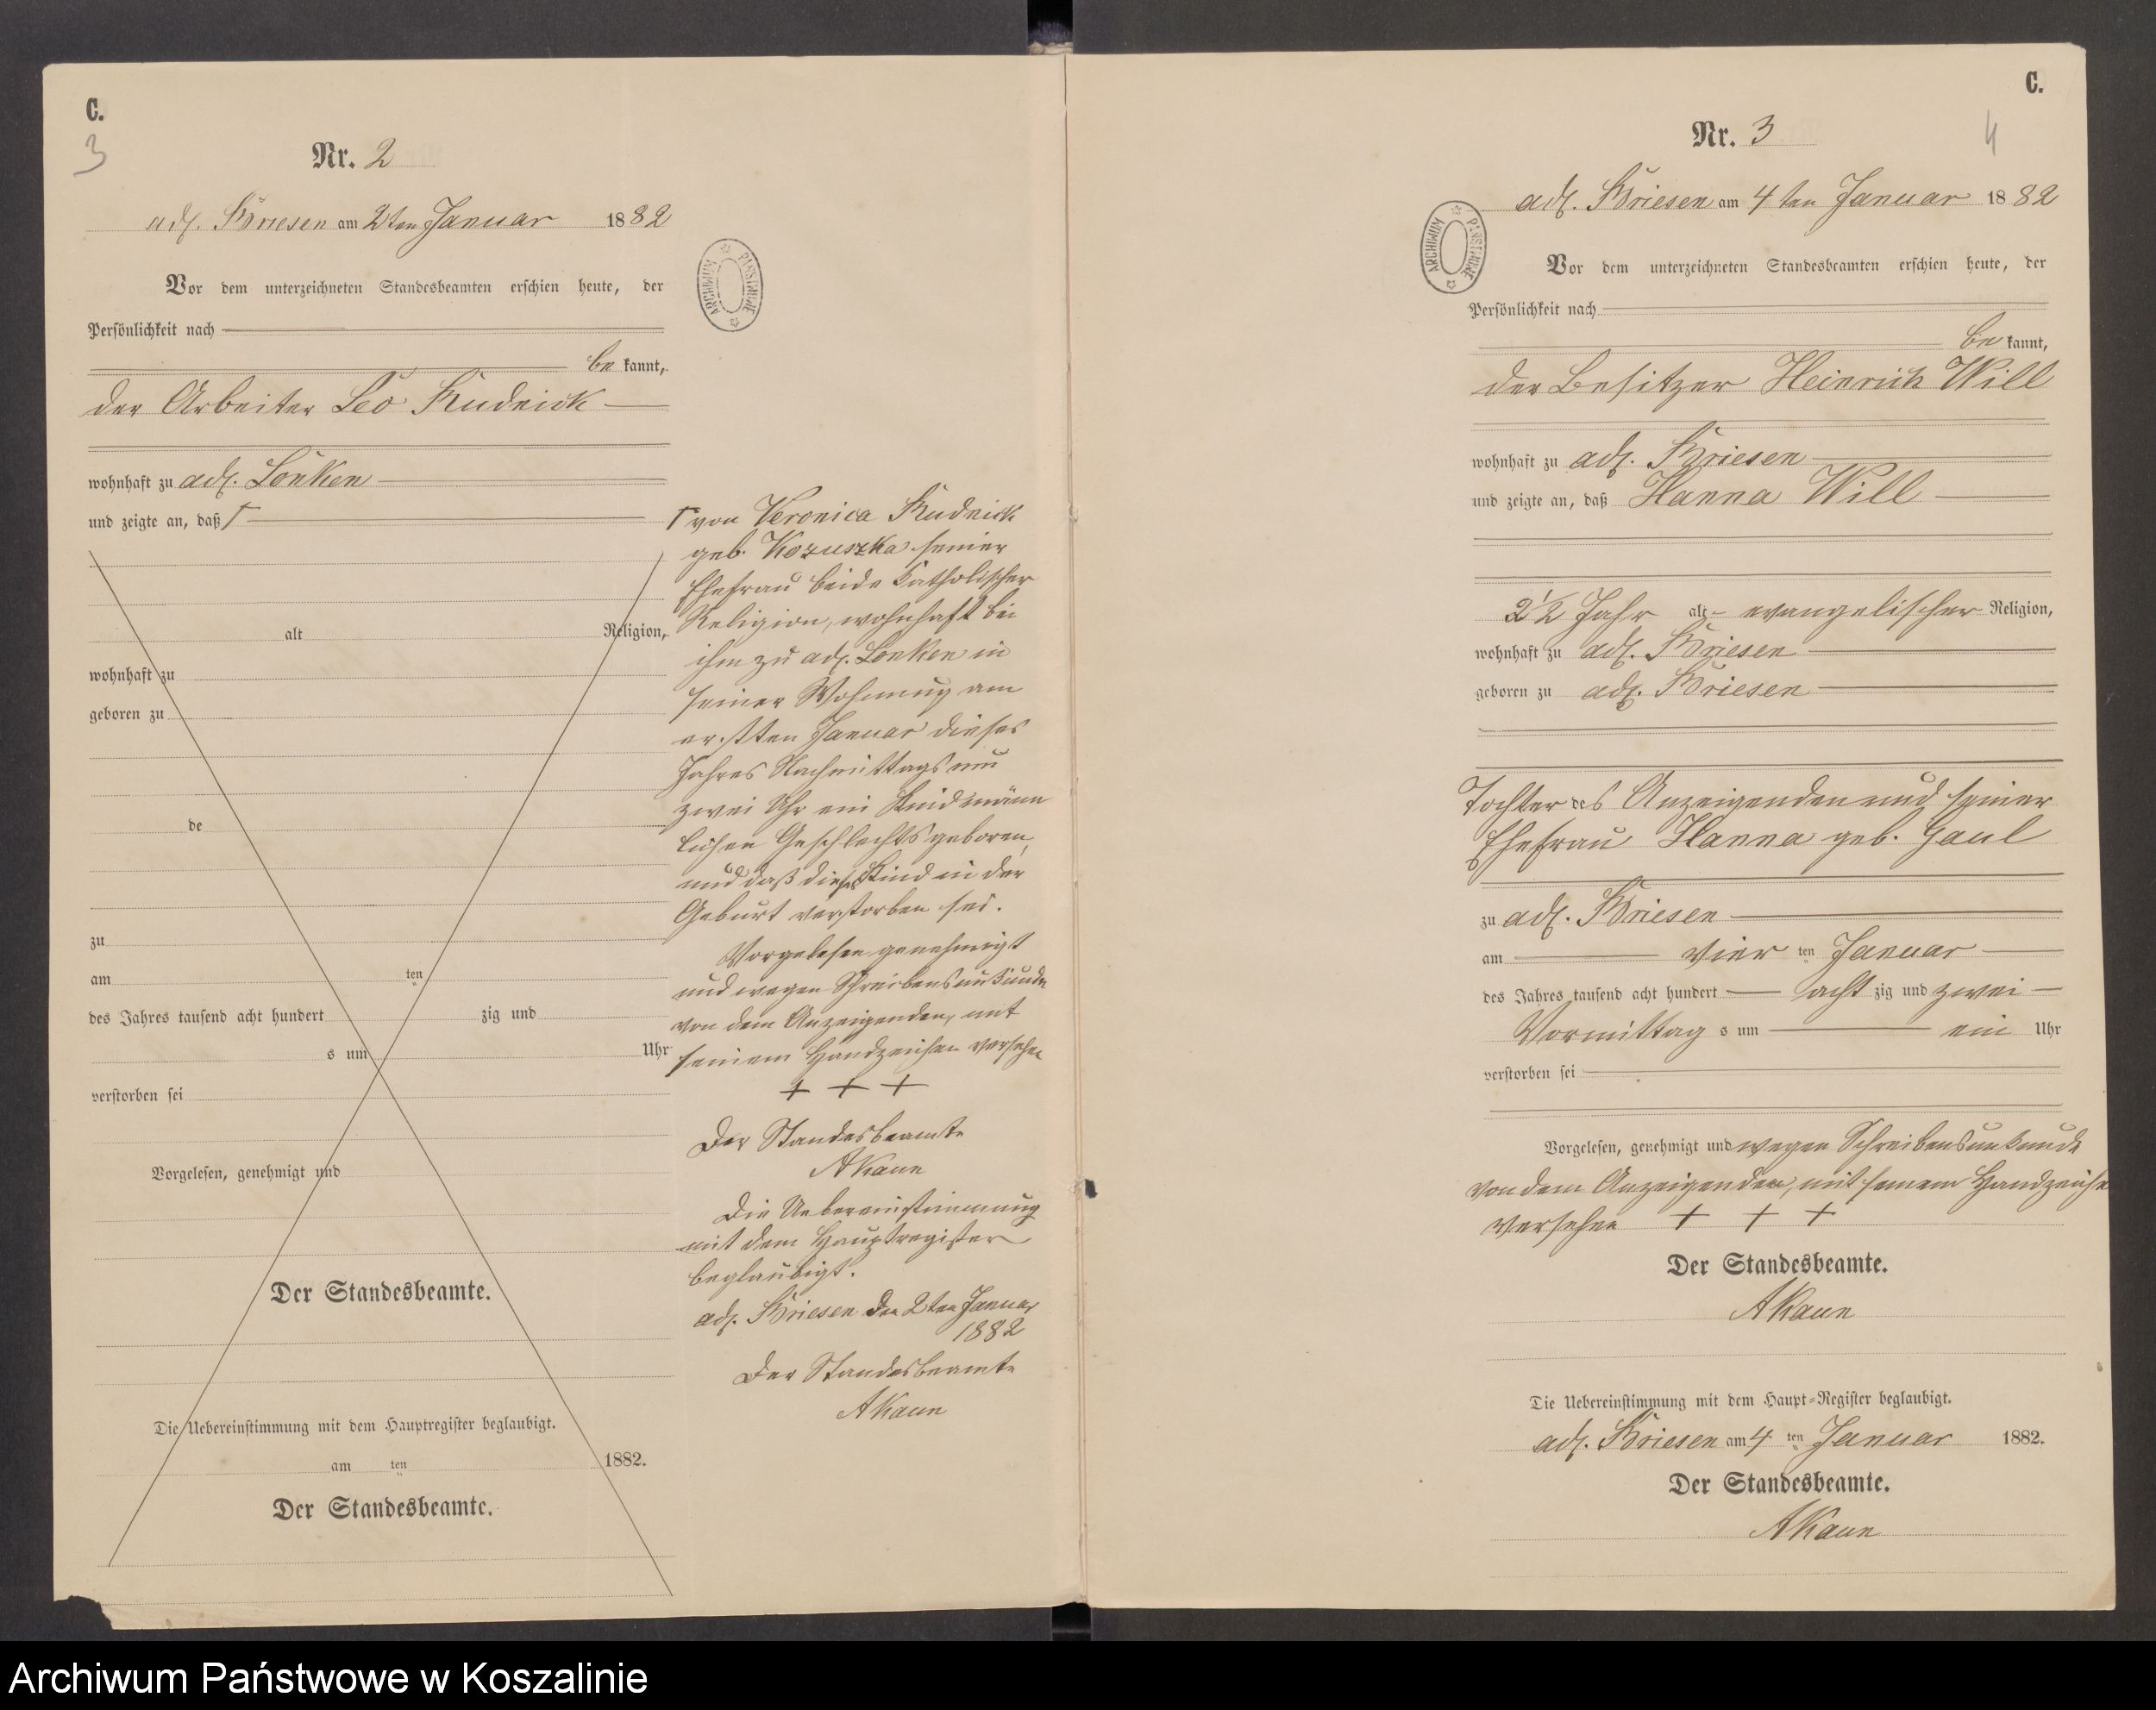 C.
3
Nr. 2
adl. Briesen am 2ten Januar 1882
Vor dem unterzeichneten Standesbeamten erschien heute, der
Persönlichkeit nach
be kannt,
der Arbeiter Leo Rudnick
wohnhaft zu adl. Lonken
und zeigte an, daß Γ
alt Religion,
wohnhaft zu
geboren zu
de
zu
am ten
des Jahres tausend acht hundert zig und
s um Uhr
verstorben sei
Vorgelesen, genehmigt und
Der Standesbeamte.
Die Uebereinstimmung mit dem Hauptregister beglaubigt.
am ten 1882.
Der Standesbeamte.
ARCHIWUM PAŃSTWOWE
Γ von Veronica Rudnick
geb. Kozuszka seiner
Ehefrau beide katholischer
Religion, wohnhaft bei
ihm zu adl. Lonken in
seiner Wohnung am
ersten Januar dieses
Jahres Nachmittags um
zwei Uhr ein Kind männ
lichen Geschlechts geboren,
und daß dieses Kind in der
Geburt verstorben sei.
Vorgelesen genehmigt
und wegen Schreibensunkunde
von dem Anzeigenden, mit
seinem Handzeichen versehen
+ + +
Der Standesbeamte
AKaun
Die Uebereinstimmung
mit dem Hauptregister
beglaubigt.
adl. Briesen den 2ten Januar
1882
Der Standesbeamte
AKaun
C.
4
Nr. 3
adl. Briesen am 4ten Januar 1882
ARCHIWUM PAŃSTWOWE
Vor dem unterzeichneten Standesbeamten erschien heute, der
Persönlichkeit nach
be kannt,
der Besitzer Heinrich Will
wohnhaft zu adl. Briesen
und zeigte an, daß Hanna Will
2 1/2 Jahr alt evangelischer Religion,
wohnhaft zu adl. Briesen
geboren zu adl. Briesen
Tochter des Anzeigenden und seiner
Ehefrau Hanna geb. Gaul
zu adl. Briesen
am vier ten Januar
des Jahres tausend acht hundert acht zig und zwei
Vormittag s um ein Uhr
verstorben sei
Vorgelesen, genehmigt und wegen Schreibensunkunde
von dem Anzeigenden, mit seinem Handzeichen
versehen + + +
Der Standesbeamte.
AKaun
Die Uebereinstimmung mit dem Haupt-Register beglaubigt.
adl. Briesen am 4 ten Januar 1882.
Der Standesbeamte.
AKaun
Archiwum Państwowe w Koszalinie